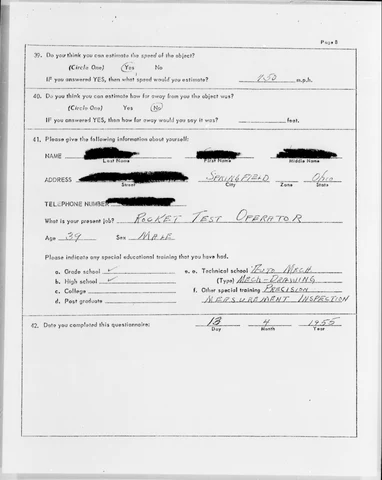 Page 8
39. Do you think you can estimate the speed of the object?
(Circle One) Yes No
IF you answered YES, then what speed would you estimate? 750 m.p.h.
40. Do you think you can estimate how far away from you the object was?
(Circle One) Yes No
IF you answered YES, then how far away would you say it was? feet.
41. Please give the following information about yourself:
NAME
Last Name First Name Middle Name
ADDRESS SPRINGFIELD OHIO
Street City Zone State
TELEPHONE NUMBER
What is your present job? ROCKET TEST OPERATOR
Age 39 Sex MALE
Please indicate any special educational training that you have had.
a. Grade school ✓ e. Technical school AUTO MECH.
b. High school ✓ (Type) MECH-DRAWING
c. College f. Other special training PRECISION
d. Post graduate MEASUREMENT INSPECTION
42. Date you completed this questionnaire: 13 4 1955
Day Month Year